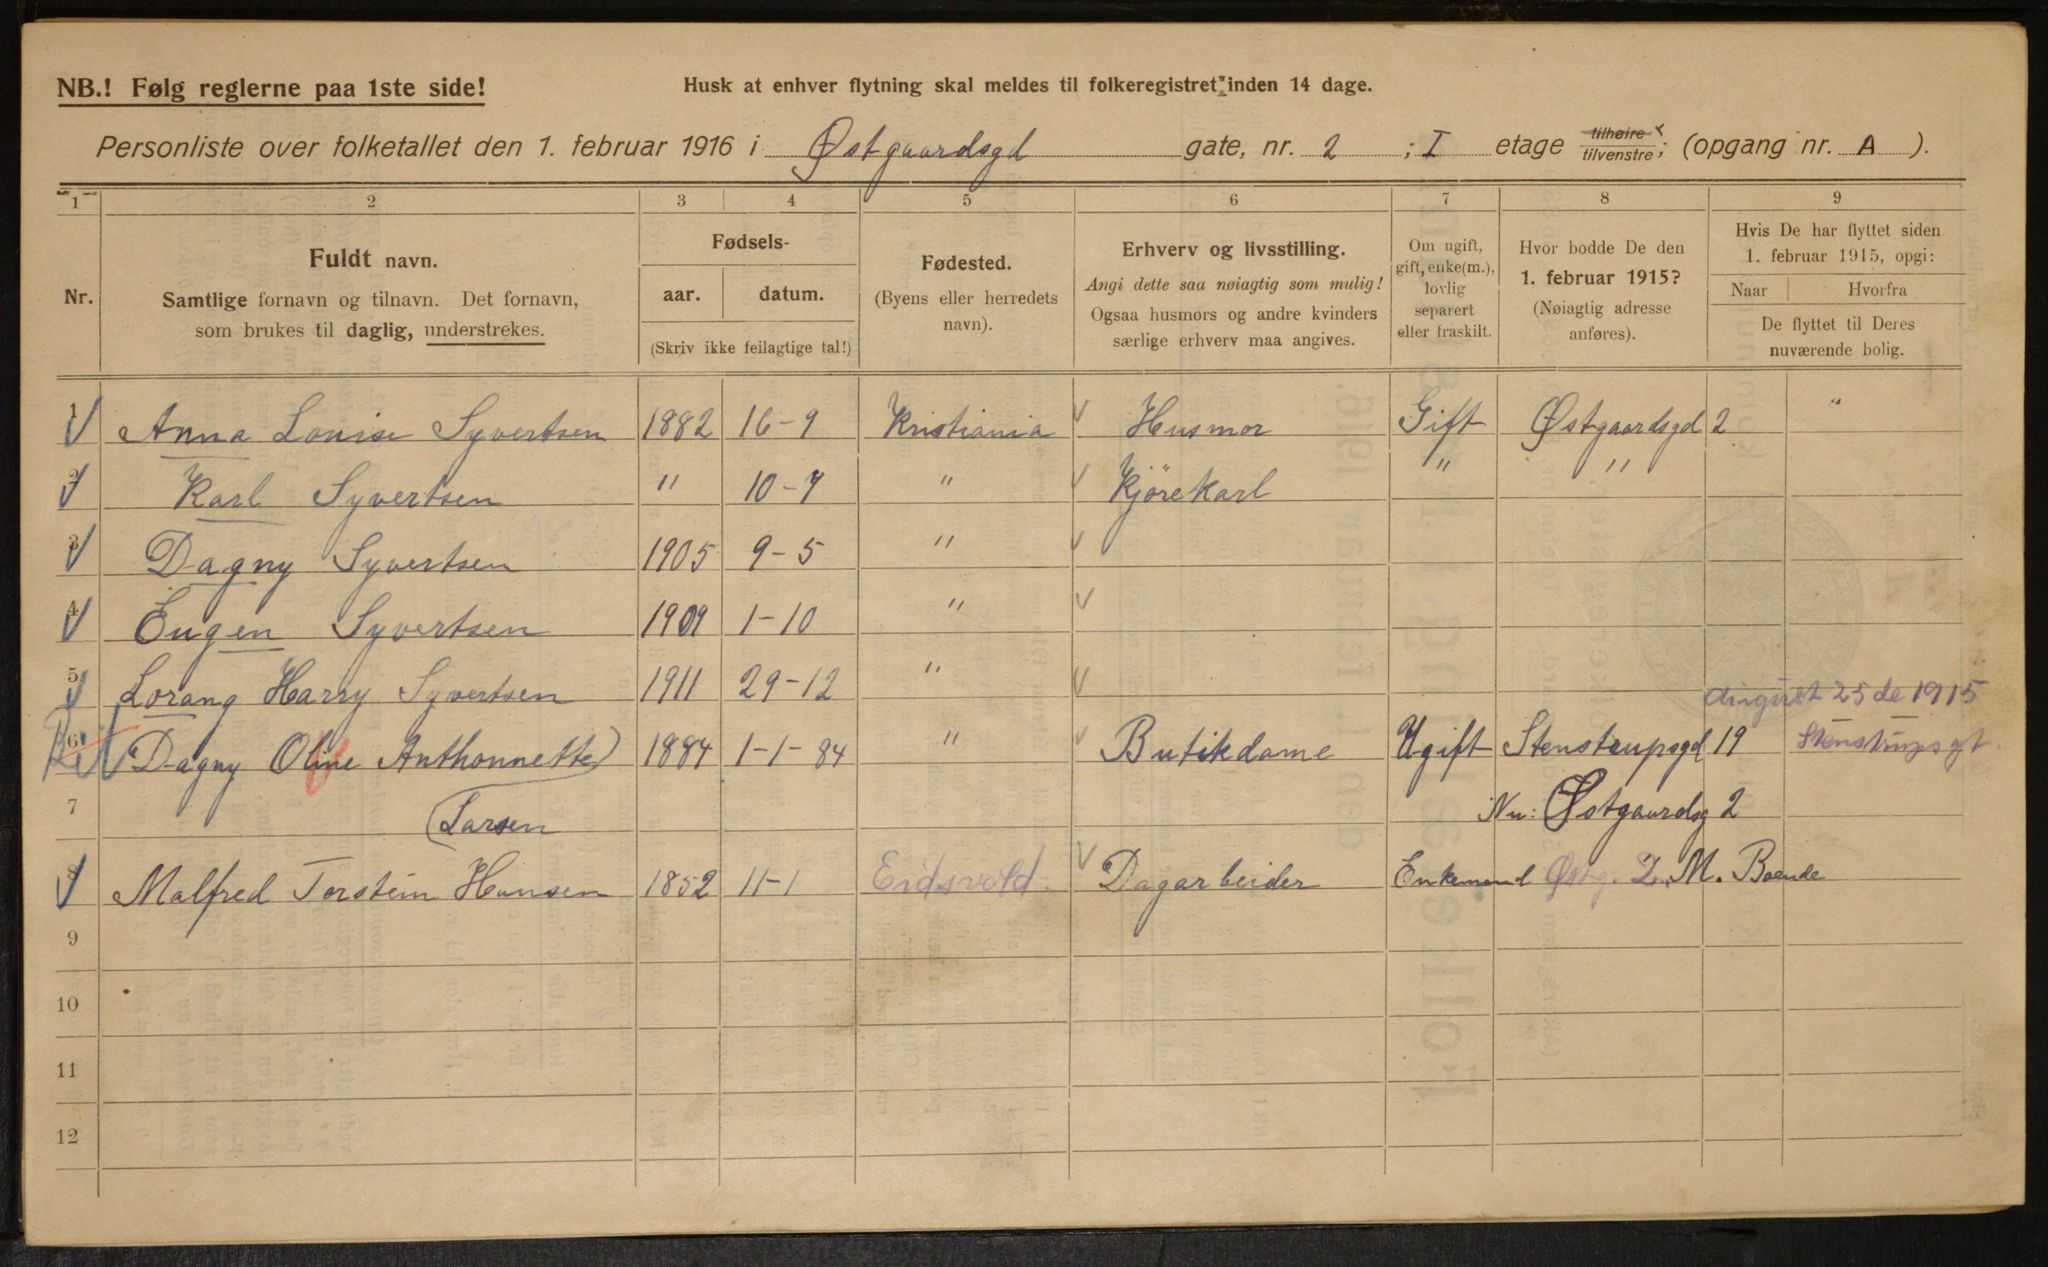 NB.! Følg reglerne paa 1ste side!
Husk at enhver flytning skal meldes til folkeregistret inden 14 dage.
Personliste over folketallet den 1. februar 1916 i Østgaardsgd gate, nr. 2 ; I etage tilhøire x tilvenstre; (opgang nr. A ).
1 2 3 4 5 6 7 8 9
Nr.
Fuldt navn.
Samtlige fornavn og tilnavn. Det fornavn,
som brukes til daglig, understrekes.
Fødsels-
aar. datum.
(Skriv ikke feilagtige tal!)
Fødested.
(Byens eller herredets
navn).
Erhverv og livsstilling.
Angi dette saa nøiagtig som mulig!
Ogsaa husmors og andre kvinders
særlige erhverv maa angives.
Om ugift,
gift, enke(m.),
lovlig
separert
eller fraskilt.
Hvor bodde De den
1. februar 1915?
(Nøiagtig adresse
anføres).
Hvis De har flyttet siden
1. februar 1915, opgi:
Naar Hvorfra
De flyttet til Deres
nuværende bolig.
1 Anna Louise Syvertsen 1882 16-9 Kristiania Husmor Gift Østgaardsgd 2 "
2 Karl Syvertsen " 10-7 " Kjørekarl " "
3 Dagny Syvertsen 1905 9-5 "
4 Eugen Syvertsen 1909 1-10 "
5 Lorang Harry Syvertsen 1911 29-12 "
august 25 de 1915
6 Dagny Oline Anthonnette) 1884 1-1-84 " Butikdame Ugift Stenstrupsgd 19 Stenstrupsgt.
7 (Larsen Nu: Østgaardsg 2
8 Malfred Torstein Hansen 1852 11-1 Eidsvold. Dagarbeider Enkemand Østg. 2. M. Boende
9
10
11
12